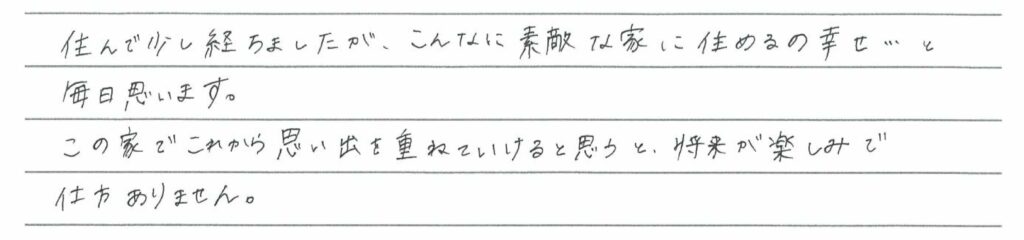 住んで少し経ちましたが、こんなに素敵な家に住めるの幸せ…と
毎日思います。
この家でこれから思い出を重ねていけると思うと、将来が楽しみで
仕方ありません。